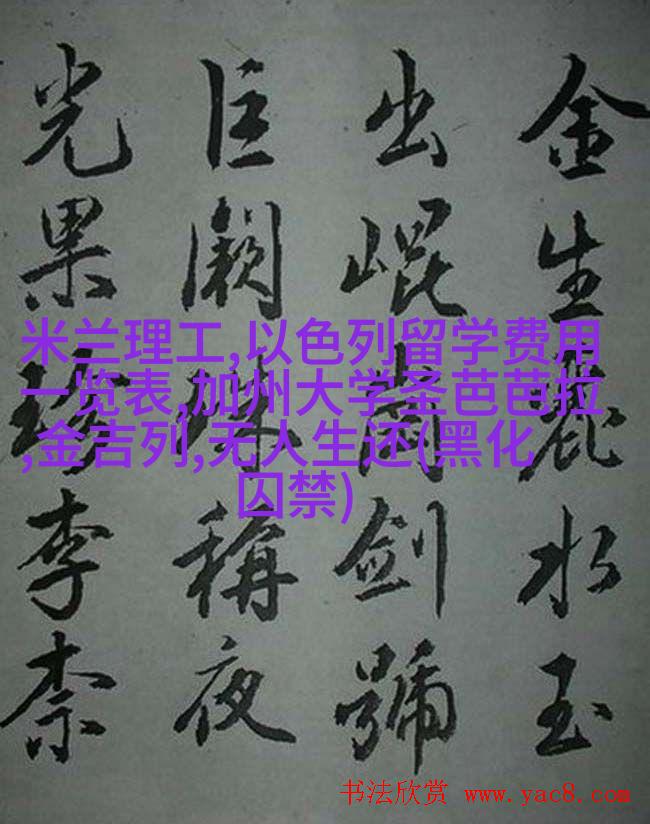 金生麗水玉
出崐岡劍號
巨闕珠稱夜
光果珍李柰
米兰理工,以色列留学费用
一览表,加州大学圣芭芭拉
,金吉列,无人生还(黑化
囚禁)
书法欣赏 www.yac8.com